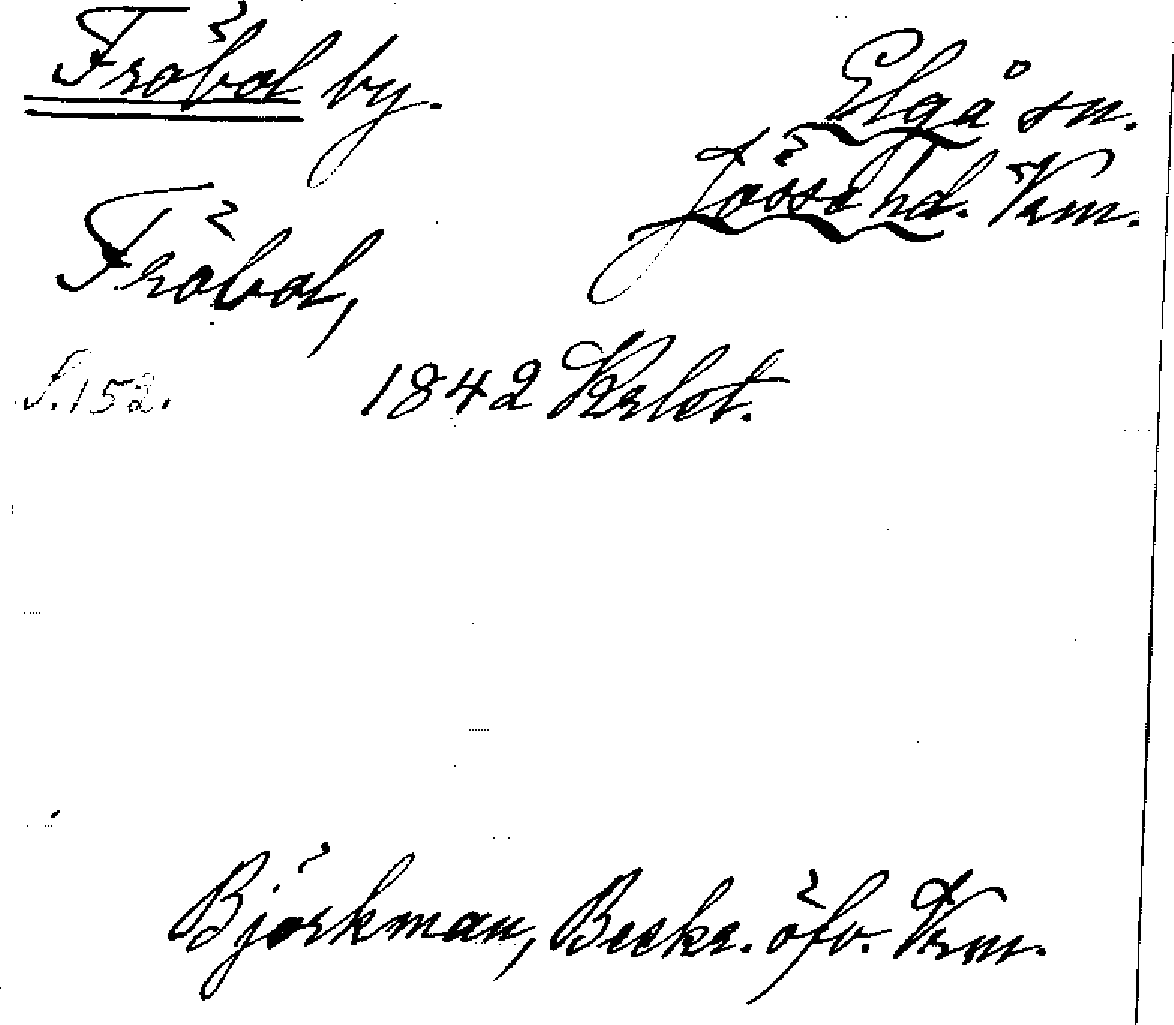 Fröbol by.
Elgå sn.
Jösse hd. Vrm.
Fröbol,
s. 152. 1842 Krlst.
Björkman, Beskr. öfv. Vrm.